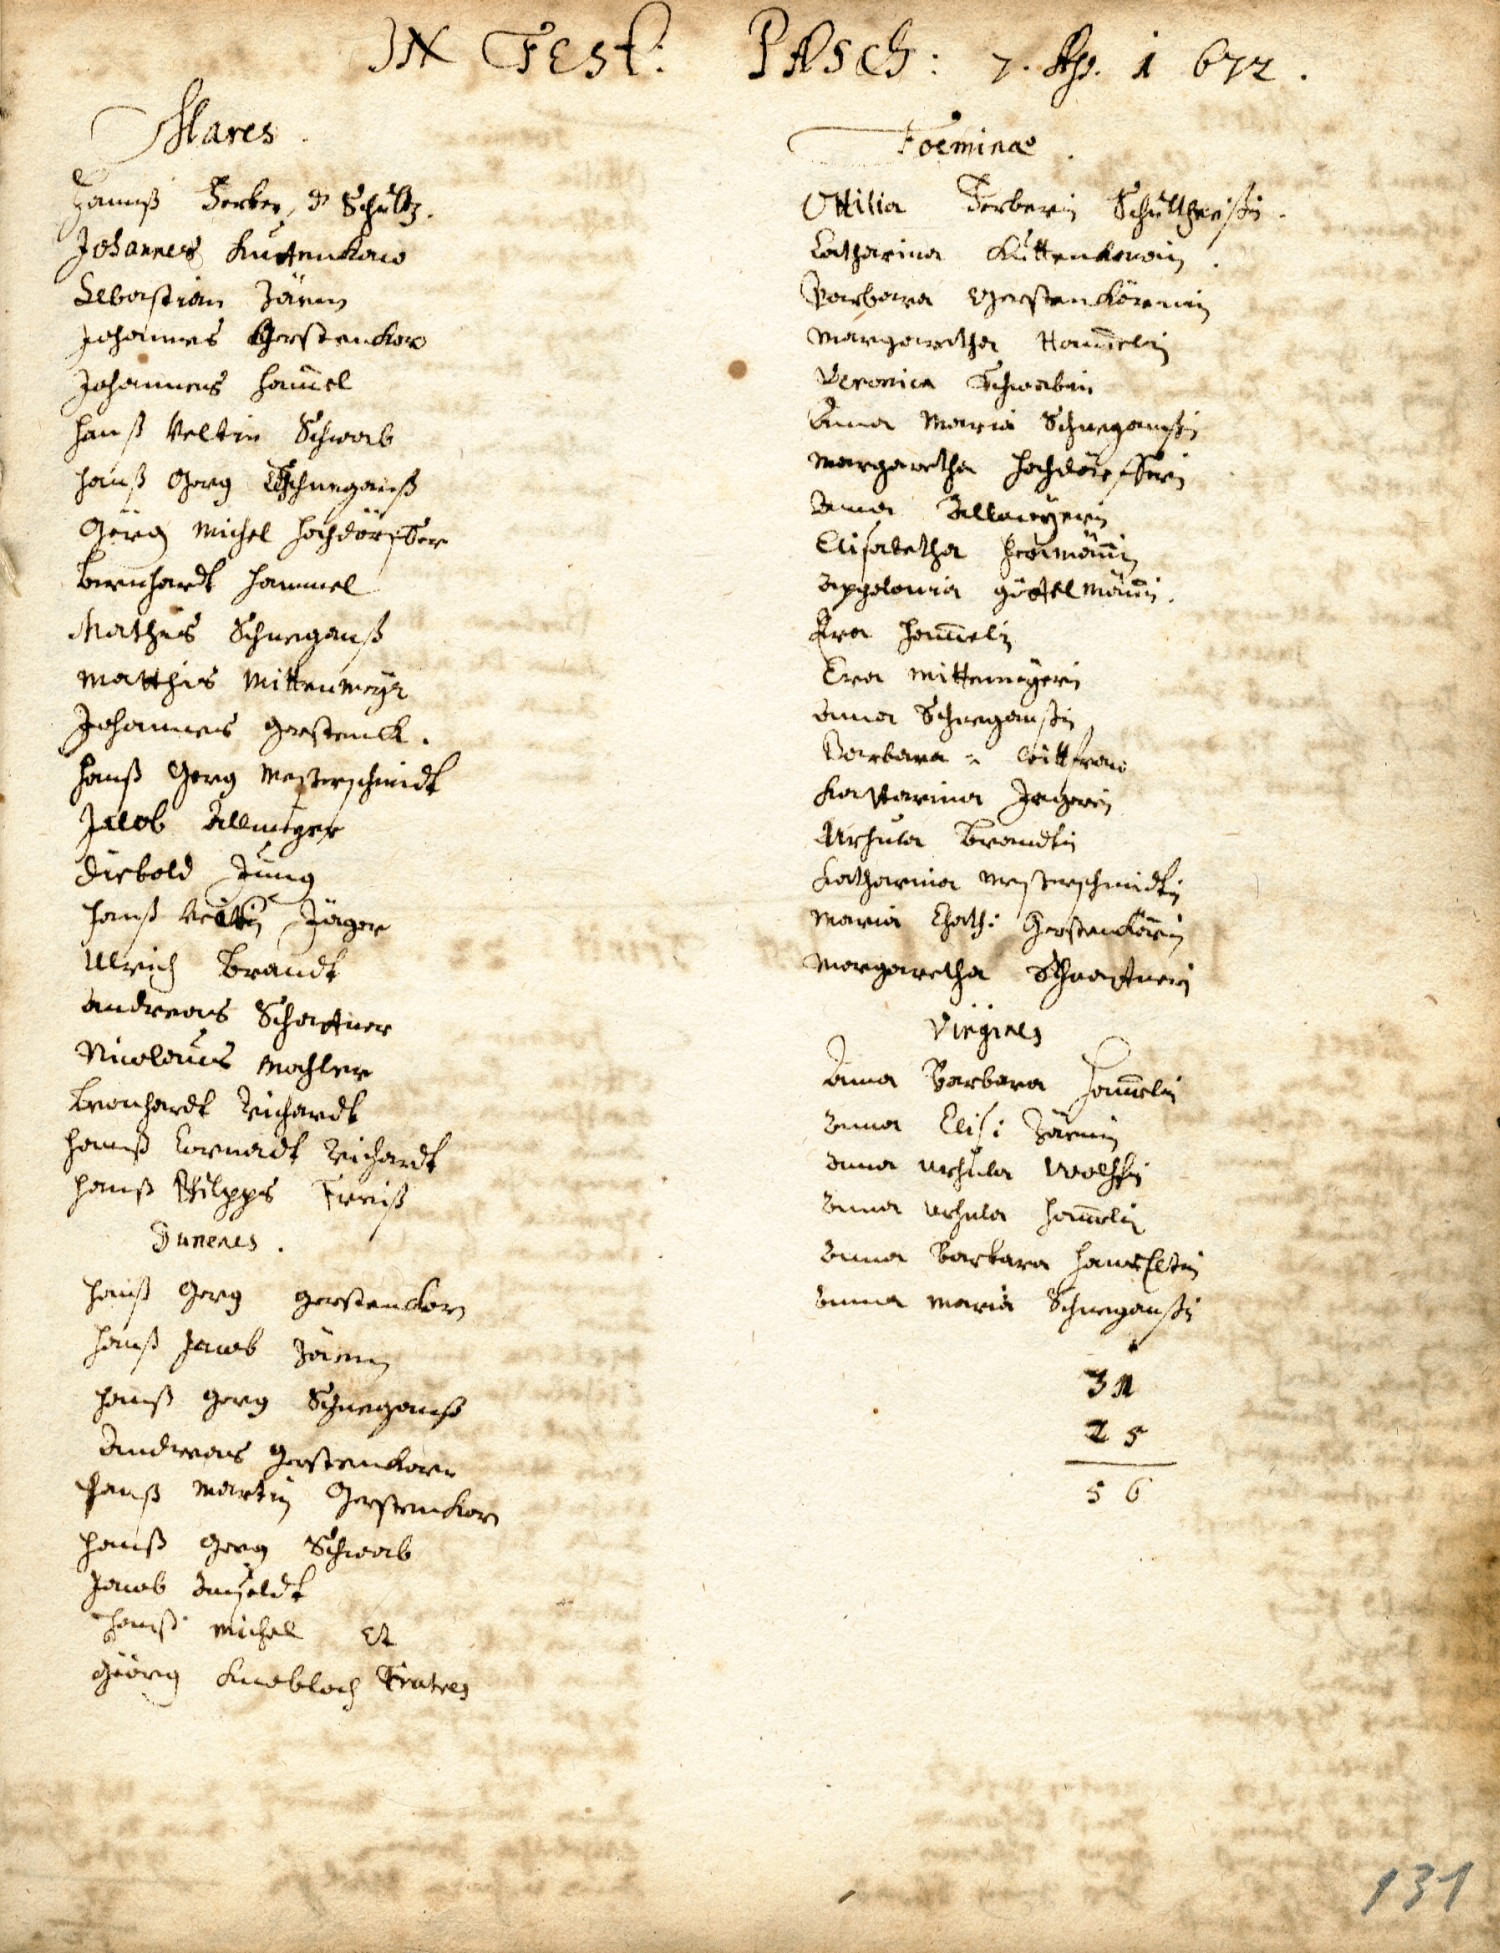 IN FEST: PASCH: 7. Ap. 1672.
Mares.
Hannß Ferber, d Schultz.
Johannes Kuttenkow
Sebastian Zären
Johannes Gerstenkor
Johannes Ham̄el
Hanß Veltin Schwab
Hanß Georg Schneganß
Görg Michel Hochdörffer
Bernhardt Hammel
Mathis Schneganß
Matthis Mittenmeyr
Johannes Gerstenk.
Hanß Georg Messerschmidt
Jacob Zillmeger
Diebold Jung
Hanß Veltin Jäger
Ulrich Brandt
Andreas Schattner
Nicolaus Machler
Leonhardt Reichardt
Hanß Conradt Reichardt
Hanß Philipps Freiß
Juvenes.
Hanß Georg Gerstenkorn
Hanß Jacob Zären
Hanß Georg Schneganß
Andreas Gerstenkorn
Hanß Martin Gerstenkorn
Hanß Georg Schwab
Jacob
Hanß Michel et
Geörg Knobloch Fratres
Foeminae.
Ottilia Ferberin Schultheissin.
Catharina Kuttenkowin.
Barbara Gerstenkörnin
Margaretha Ham̄elin
Veronica Schwabin
Anna Maria Schneganßin
Margaretha Hochdörfferin
Anna
Elisabetha
Appolonia
Eva Ham̄elin
Eva Mittemeyerin
Anna Schneganßin
Barbara Wittfraw
Kattarina Jegerin
Urhula Brandtin
Katharina Messerschmidtin
Maria Chath: Gerstenkörnin
Margaretha Schaattnerin
Virgines
Anna Barbara Ham̄elin
Anna Elis: Zärnin
Anna Urhula Wolffin
Anna Urhula Ham̄elin
Anna Barbara
Anna Maria Schneganßin
31
25
56
131